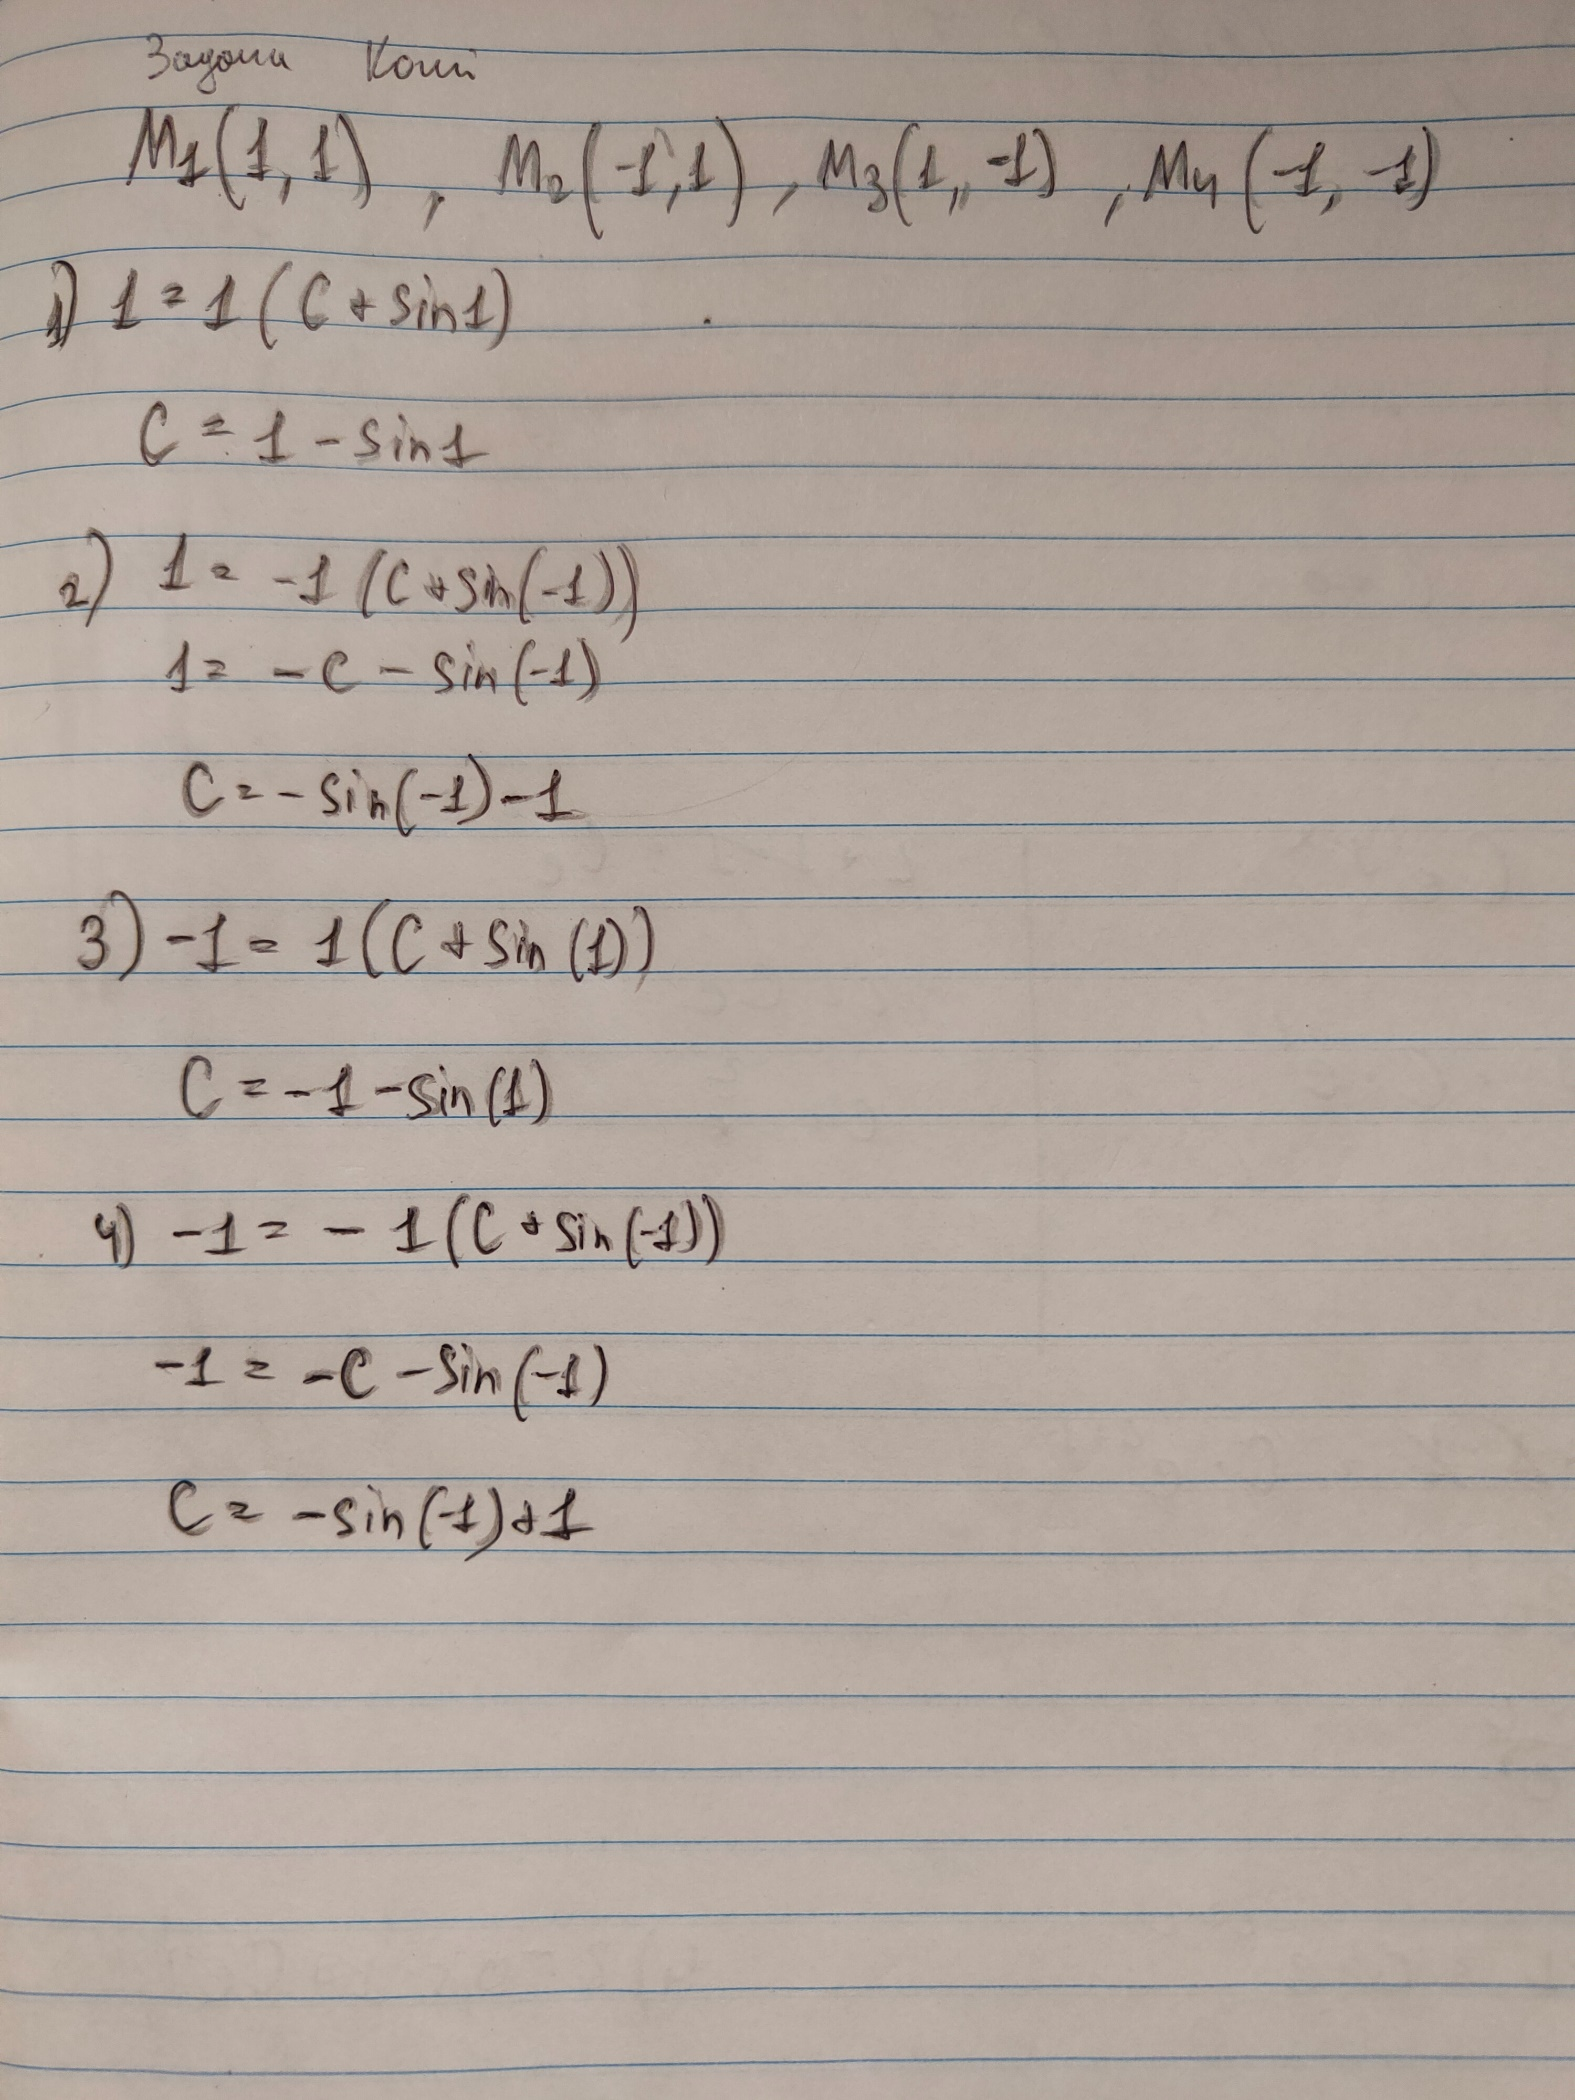 Задача Коші
M₁(1, 1) , M₂(-1, 1) , M₃(1, -1) , M₄(-1, -1)
1) 1 = 1(C + sin1)
C = 1 - sin1
2) 1 = -1(C + sin(-1))
1 = -C - sin(-1)
C = - sin(-1) - 1
3) -1 = 1(C + sin(1))
C = -1 - sin(1)
4) -1 = - 1(C + sin(-1))
-1 = -C - sin(-1)
C = -sin(-1) + 1